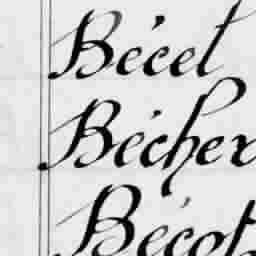 Bécet
Bécher
Bécot